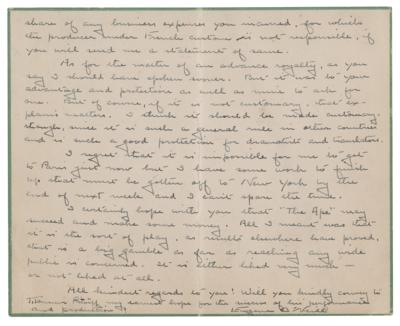 share of any business expenses you incurred, for which
the producer under French custom is not responsible, if
you will send me a statement of same.
As for the matter of an advance royalty, as you
say I should have spoken sooner. But it was to your
advantage and protection as well as mine to ask for
one. But of course, if it is not customary, that ex-
plains matters. I think it should be made customary,
though, since it is such a general rule in other countries
and is such a good protection for dramatist and translators.
I regret that it is impossible for me to get
to Paris just now but I have some work to finish
up that must be gotten off to New York by the
end of next week and I can't spare the time.
I certainly hope with you that "The Ape" may
succeed and make some money. All I meant was that
it is the sort of play, as results elsewhere have proved,
that is a big gamble as far as reaching any wide
public is concerned. It is either liked very much —
or not liked at all.
All kindest regards to you! Will you kindly convey to
my earnest hope for the success of his performance
and production?
Eugene O'Neill